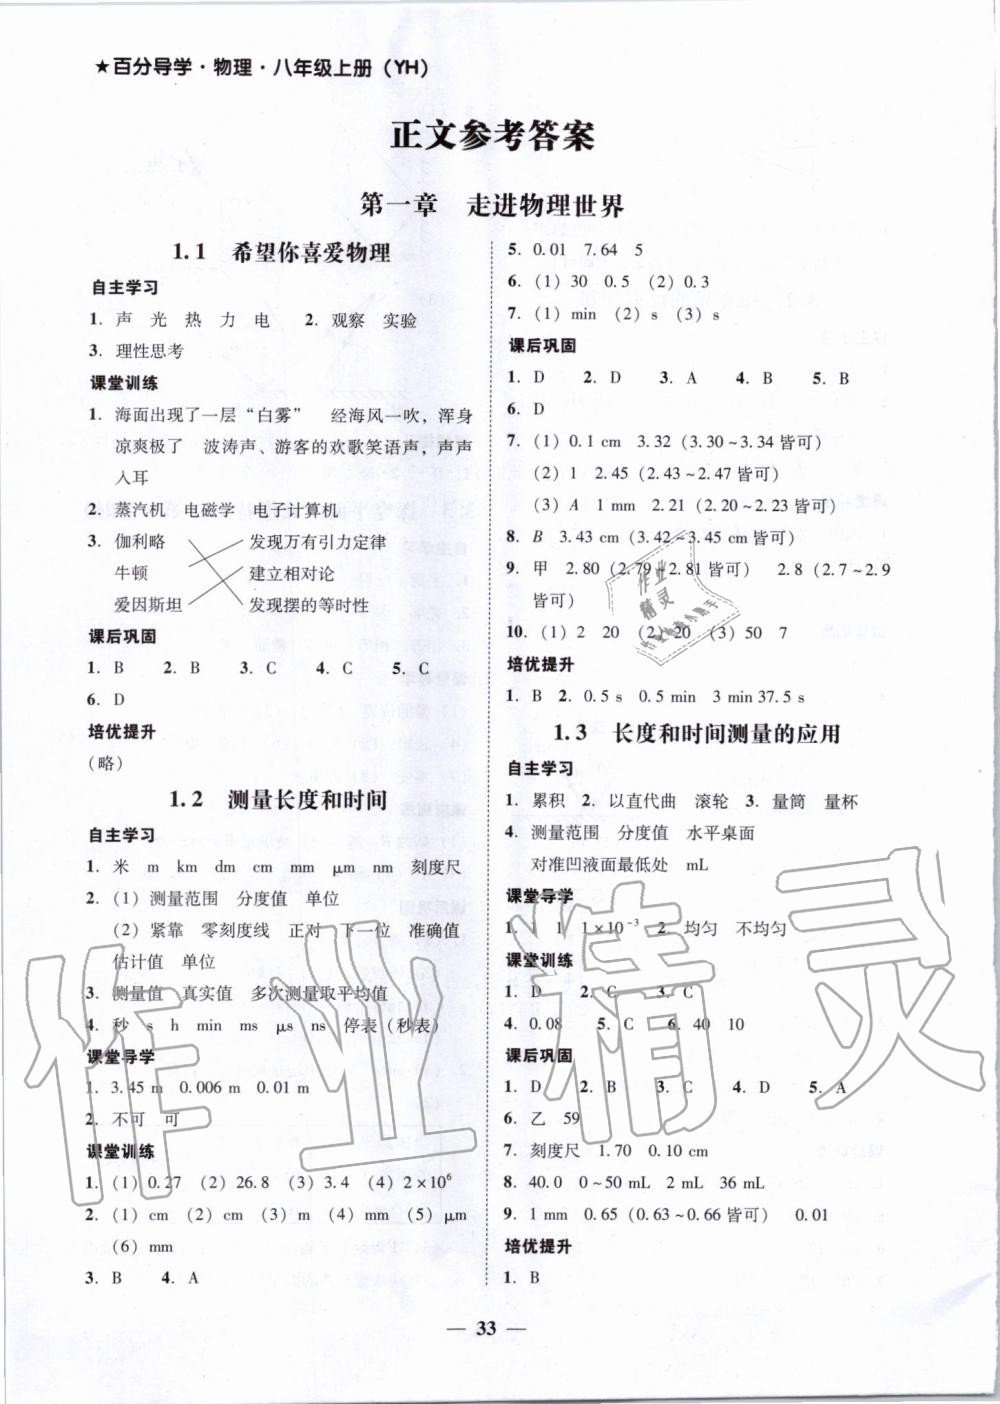 ★百分导学·物理·八年级上册(YH)
正文参考答案
第一章 走进物理世界
1.1 希望你喜爱物理
自主学习
1. 声 光 热 力 电 2. 观察 实验
3. 理性思考
课堂训练
1. 海面出现了一层“白雾” 经海风一吹，浑身
凉爽极了 波涛声、游客的欢歌笑语声，声声
入耳
2. 蒸汽机 电磁学 电子计算机
3. 伽利略 发现万有引力定律
牛顿 建立相对论
爱因斯坦 发现摆的等时性
课后巩固
1. B 2. B 3. C 4. C 5. C
6. D
培优提升
(略)
1.2 测量长度和时间
自主学习
1. 米 m km dm cm mm μm nm 刻度尺
2. (1) 测量范围 分度值 单位
(2) 紧靠 零刻度线 正对 下一位 准确值
估计值 单位
3. 测量值 真实值 多次测量取平均值
4. 秒 s h min ms μs ns 停表(秒表)
课堂导学
1. 3.45 m 0.006 m 0.01 m
2. 不可 可
课堂训练
1. (1) 0.27 (2) 26.8 (3) 3.4 (4) 2×10⁶
2. (1) cm (2) cm (3) m (4) mm (5) μm
(6) mm
3. B 4. A
5. 0.01 7.64 5
6. (1) 30 0.5 (2) 0.3
7. (1) min (2) s (3) s
课后巩固
1. D 2. D 3. A 4. B 5. B
6. D
7. (1) 0.1 cm 3.32 (3.30~3.34 皆可)
(2) 1 2.45 (2.43~2.47 皆可)
(3) A 1 mm 2.21 (2.20~2.23 皆可)
8. B 3.43 cm (3.42~3.45 cm 皆可)
9. 甲 2.80 (2.79~2.81 皆可) 2.8 (2.7~2.9
皆可)
10. (1) 2 20 (2) 20 (3) 50 7
培优提升
1. B 2. 0.5 s 0.5 min 3 min 37.5 s
1.3 长度和时间测量的应用
自主学习
1. 累积 2. 以直代曲 滚轮 3. 量筒 量杯
4. 测量范围 分度值 水平桌面
对准凹液面最低处 mL
课堂导学
1. 1 1 1×10⁻³ 2. 均匀 不均匀
课堂训练
1. D 2. C 3. C
4. 0.08 5. C 6. 40 10
课后巩固
1. D 2. B 3. C 4. D 5. A
6. 乙 59
7. 刻度尺 1.70 0.10 cm
8. 40.0 0~50 mL 2 mL 36 mL
9. 1 mm 0.65 (0.63~0.66 皆可) 0.01
培优提升
1. B
— 33 —
作业精灵
作业
精灵